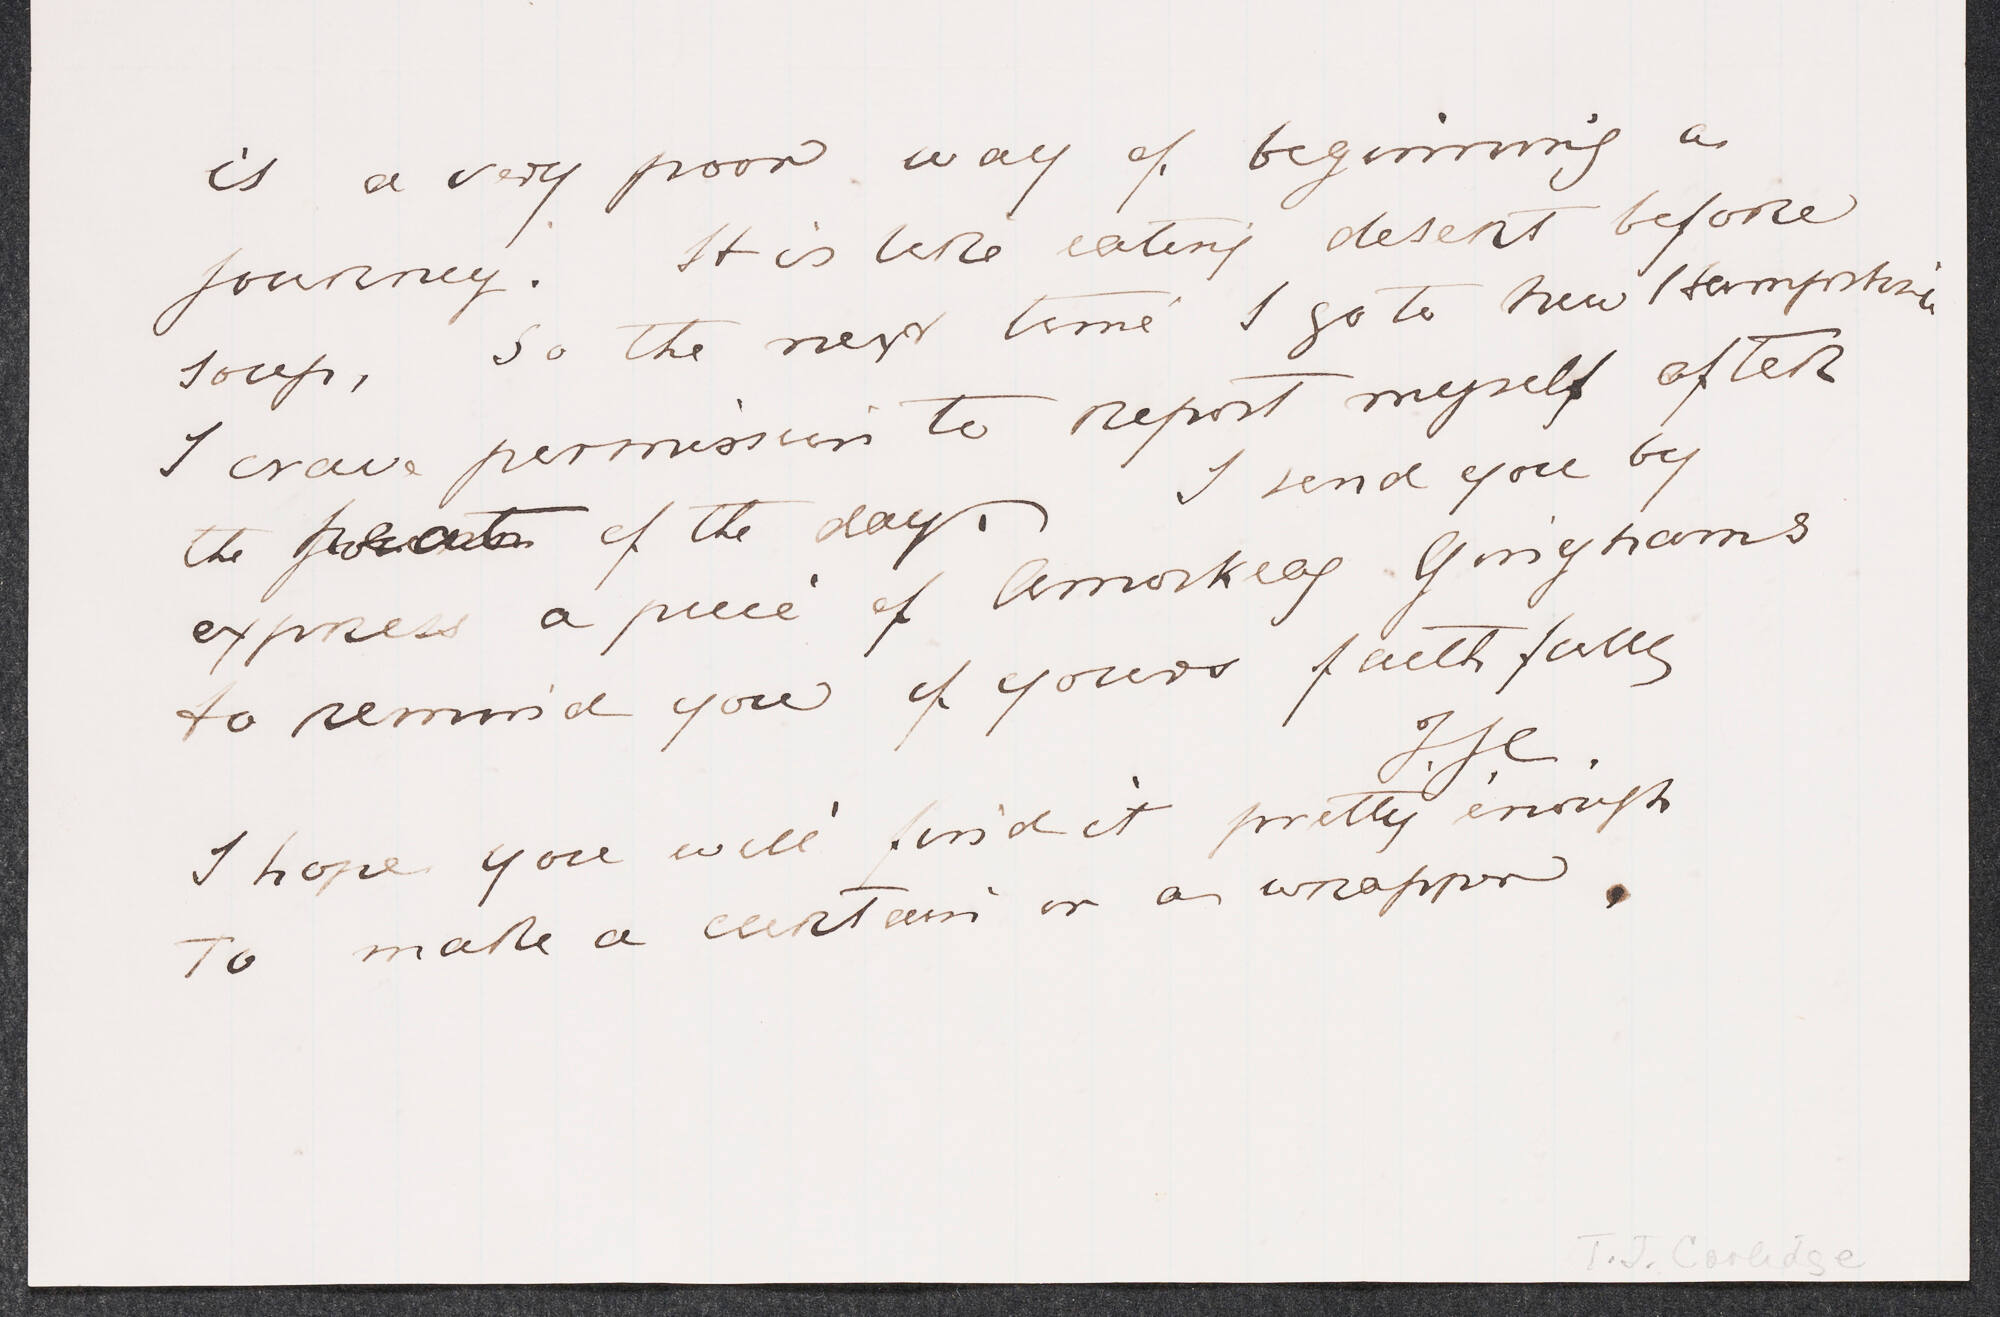 is a very poor way of beginning a
journey. It is like eating desert before
soup, So the next time I go to New Hampshire
I crave permission to report myself after
the of the day. I send you by
express a piece of Amoskeag Ginghams
to remind you of yours faithfully
T.J.C.
I hope you will find it pretty enough
To make a curtain or a wrapper.
T.J. Coolidge